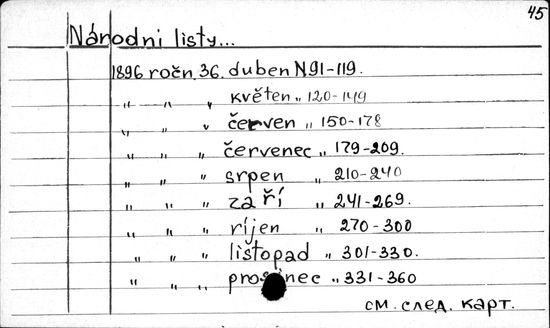 45
Národni listy...
1896 ročn. 36. duben N 91-119.
" " " květen " 120-149
" " " červen " 150-178
" " " červenec " 179-209.
" " " srpen " 210-240
" " " září " 241-269.
" " " ríjen " 270-300
" " " listopad " 301-330.
" " " prosinec " 331-360
см. след. карт.